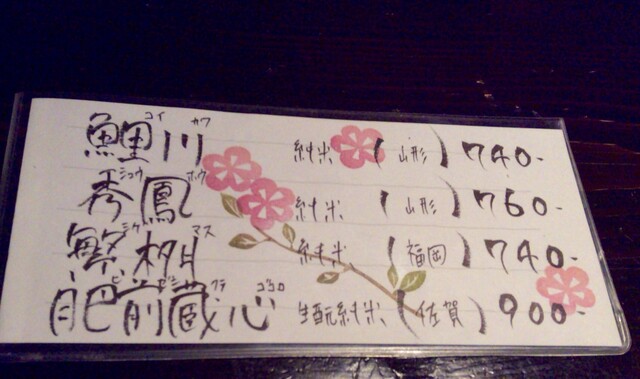 コイ カワ
鯉川 純米 (山形) 740-
シュウ ホウ
秀鳳 純米 (山形) 760-
シゲ マス
繁桝 純米 (福岡) 740-
ココロ
肥前蔵心 生酛純米 (佐賀) 900-